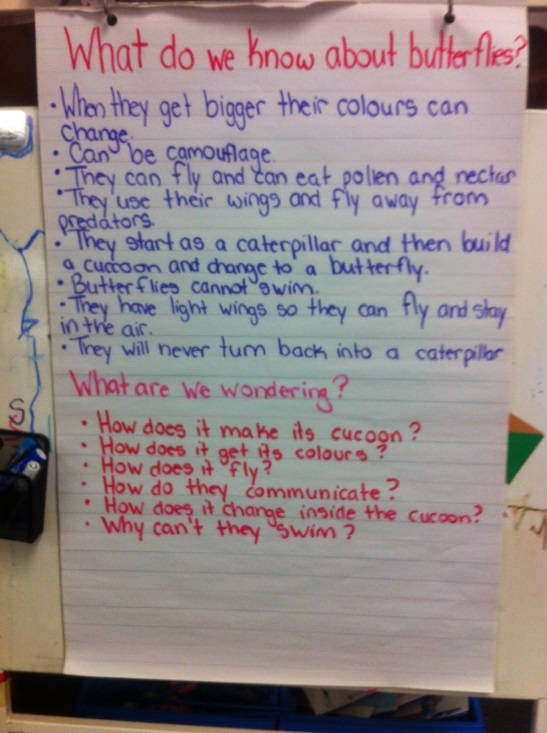 What do we know about butterflies?
• When they get bigger their colours can
change.
• Can be camouflage.
• They can fly and can eat pollen and nectar
• They use their wings and fly away from
predators.
• They start as a caterpillar and then build
a cuccoon and change to a butterfly.
• Butterflies cannot swim.
• They have light wings so they can fly and stay
in the air.
• They will never turn back into a caterpillar
What are we wondering?
• How does it make its cucoon?
• How does it get its colours?
• How does it fly?
• How do they communicate?
• How does it change inside the cucoon?
• Why can't they swim?
S